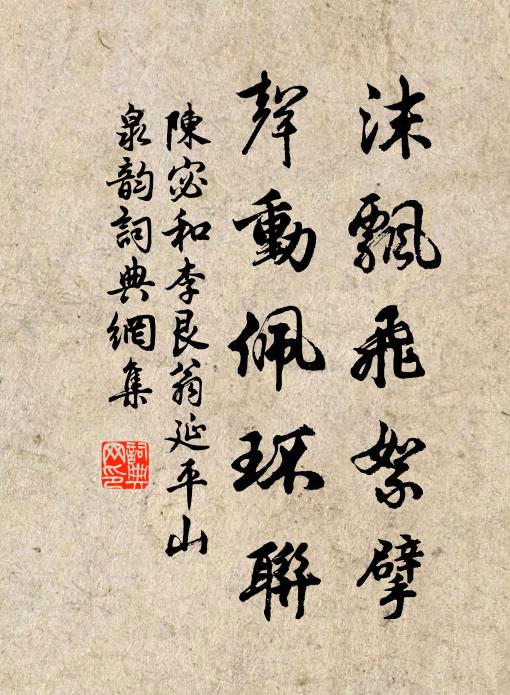 沫飄飛絮擘
聲動佩環聯
陳宓和李艮翁延平山
泉韵詞典網集
詞典網印